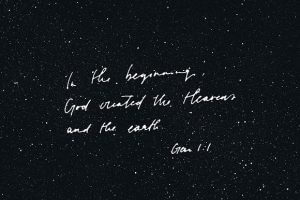 In the beginning,
God created the Heavens
and the earth
Gen 1:1